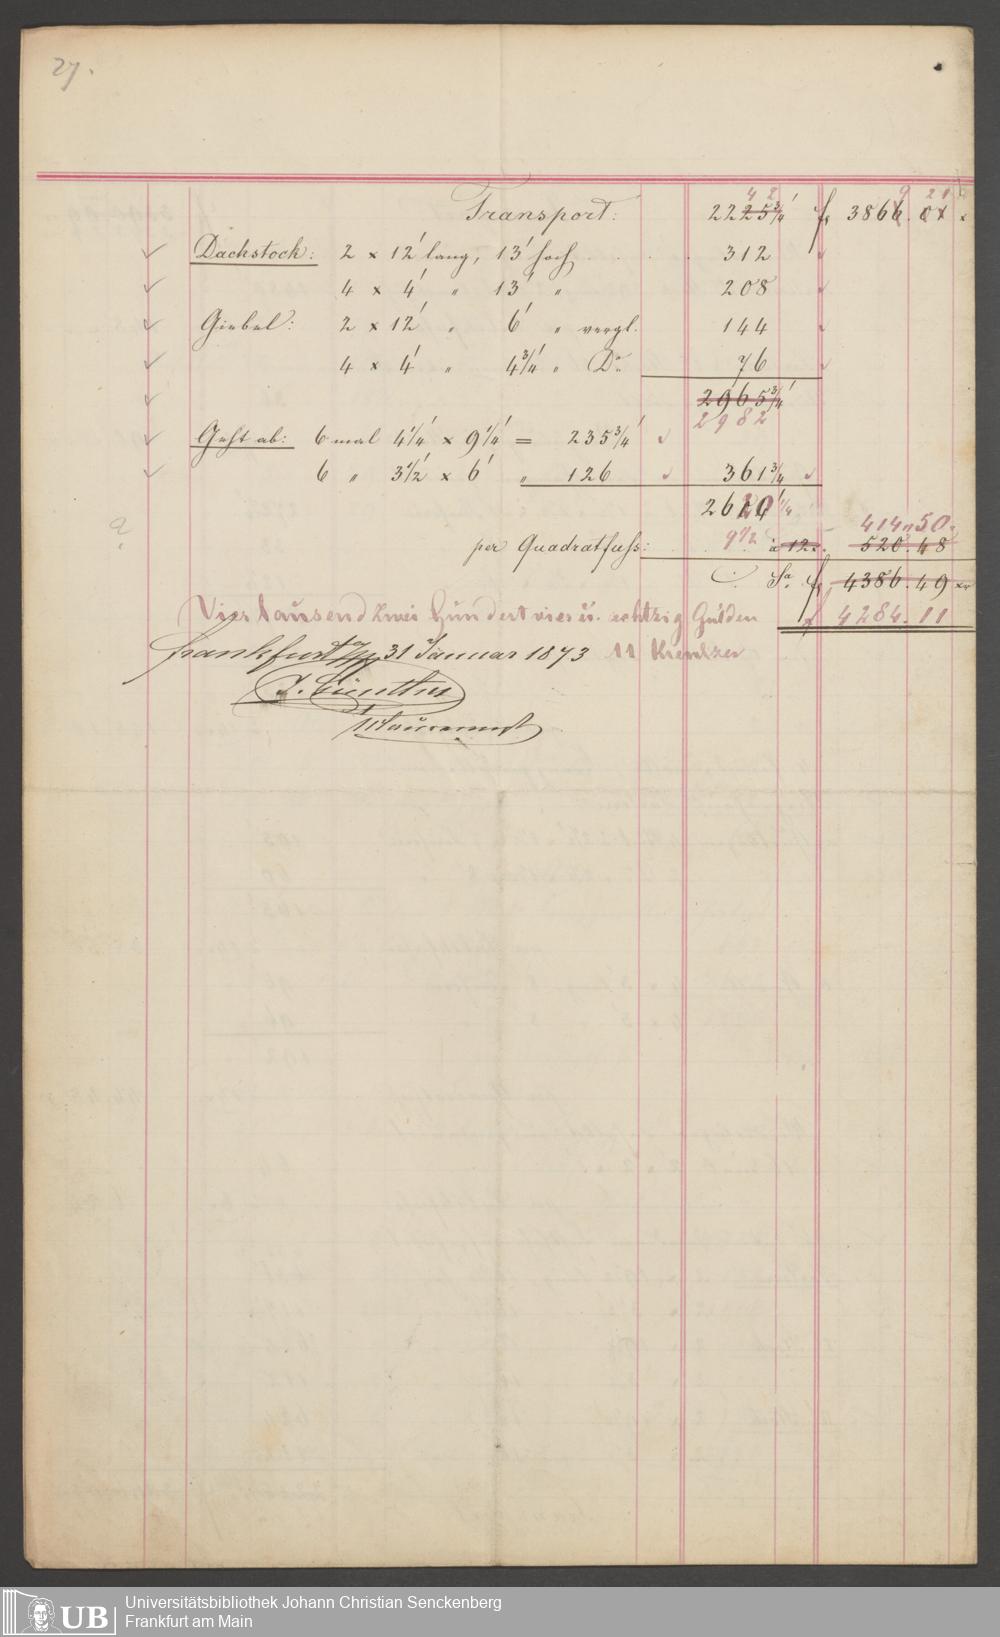 27.
4 2 9 21
Transport: 2225¾' f. 3866. 01 x
Dachstock: 2 x 12' lang, 13' hoch . . . . 312
4 x 4' " 13' " 208
Giebel: 2 x 12' " 6' " vergl. 144
4 x 4' " 4¾' " Do. 76
2965¾'
2982
Geht ab: 6 mal 4¼' x 9¼' = 235¾'
6 " 3½' x 6' " 126 361¾
2620¼
414„50.
per Quadratfuß: 9½ à 12x. 520.48
Sa. f. 4386.49 xr
Vier tausend zwei hundert vier u. achtzig Gulden f 4284.11
Frankfurt a/M 31 Januar 1873 11 Kreutzer
J. Günther
Maurermst
UB Universitätsbibliothek Johann Christian Senckenberg
Frankfurt am Main